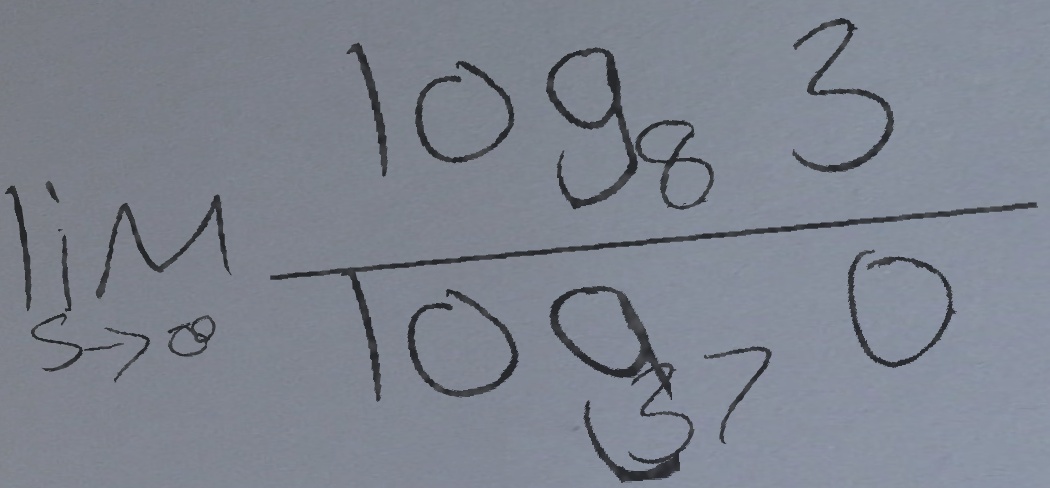 lim_{s→∞} \frac{log_8 3}{log_{37} 0}